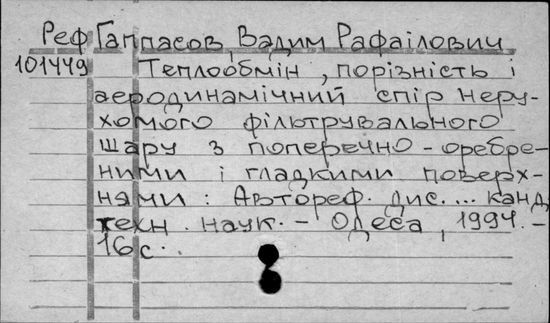 Реф Гаппасов, Вадим Рафаілович
101449 Теплообмін, порізність і
аеродинамічний спір неру-
хомого фільтрувального
шару з поперечно-оребре-
ними і гладкими поверх-
нями: Автореф. дис. ... канд.
техн. наук. - Одеса, 1994. -
16с.